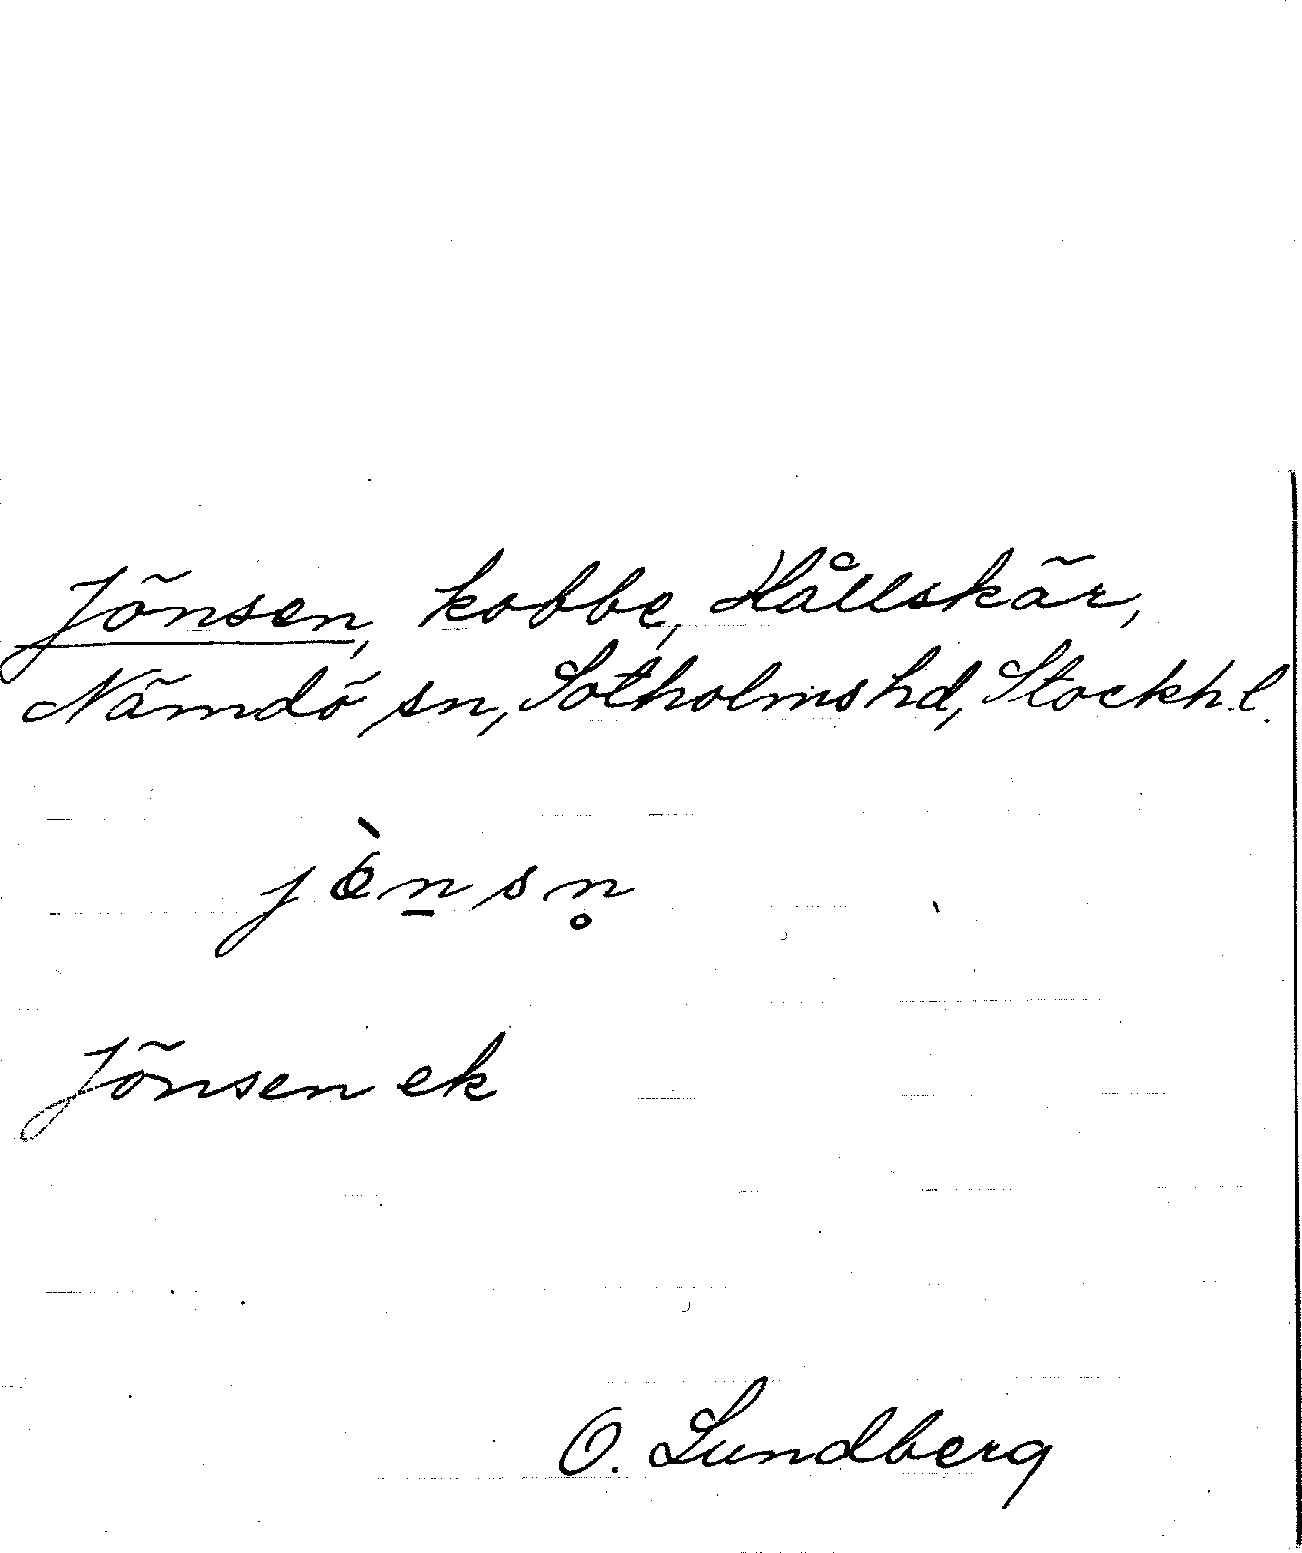 Jönsen, kobbe, Hållskär,
Nämdö sn, Sotholms hd, Stockh. l.
jö̀n̠sn̥
Jönsen ek
O. Lundberg